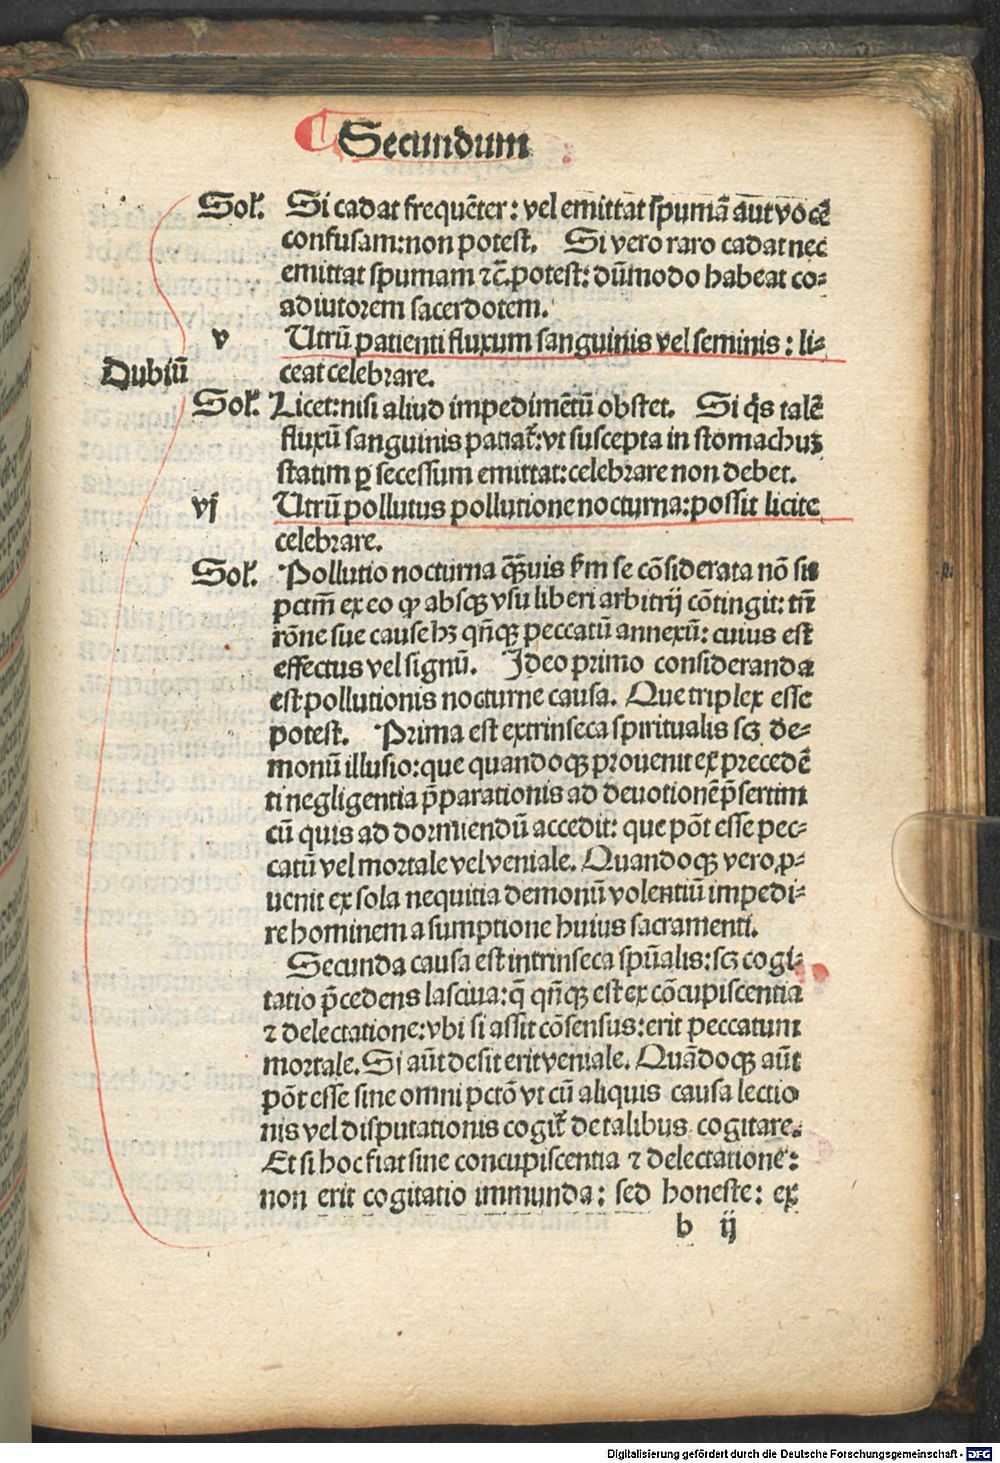 Secundum
Sol᷑. Si cadat frequẽter: vel emittat spumã aut vocẽ
confusam: non potest. Si vero raro cadat nec
emittat spumam ⁊c̃. potest: dũmodo habeat co⸗
adiutorem sacerdotem.
v Utrũ patienti fluxum sanguinis vel seminis: li⸗
Dubiũ ceat celebrare.
Sol᷑. Licet: nisi aliud impedimẽtũ obstet. Si q̃s talẽ
fluxũ sanguinis patiat᷑: vt suscepta in stomachuꝫ
statim ꝑ secessum emittat: celebrare non debet.
vj Utrũ pollutus pollutione nocturna: possit licite
celebrare.
Sol᷑. Pollutio nocturna q̃ꝗuis ẜm se cõsiderata nõ sit
pctm̃ ex eo ꝙ absqꝫ vsu liberi arbitrij cõtingit: tñ
rõne sue cause hꝫ qñqꝫ peccatũ annexũ: cuius est
effectus vel signũ. Ideo primo consideranda
est pollutionis nocturne causa. Que triplex esse
potest. Prima est extrinseca spiritualis scꝫ de⸗
monũ illusio: que quandoqꝫ prouenit ex precedẽ
ti negligentia p̃parationis ad deuotionẽ p̃sertim
cũ quis ad dormiendũ accedit: que põt esse pec⸗
catũ vel mortale vel veniale. Quandoqꝫ vero ꝓ⸗
uenit ex sola nequitia demonũ volentiũ impedi⸗
re hominem a sumptione huius sacramenti.
Secunda causa est intrinseca spũalis: scꝫ cogi⸗
tatio p̃cedens lasciua: q̃ qñqꝫ est ex cõcupiscentia
⁊ delectatione: vbi si assit cõsensus: erit peccatum
mortale. Si aũt desit erit veniale. Quãdoqꝫ aũt
põt esse sine omni pctõ vt cũ aliquis causa lectio
nis vel disputationis cogit᷑ de talibus cogitare.
Et si hoc fiat sine concupiscentia ⁊ delectatione:
non erit cogitatio immunda: sed honeste: ex
b ij
Digitalisierung gefördert durch die Deutsche Forschungsgemeinschaft - DFG